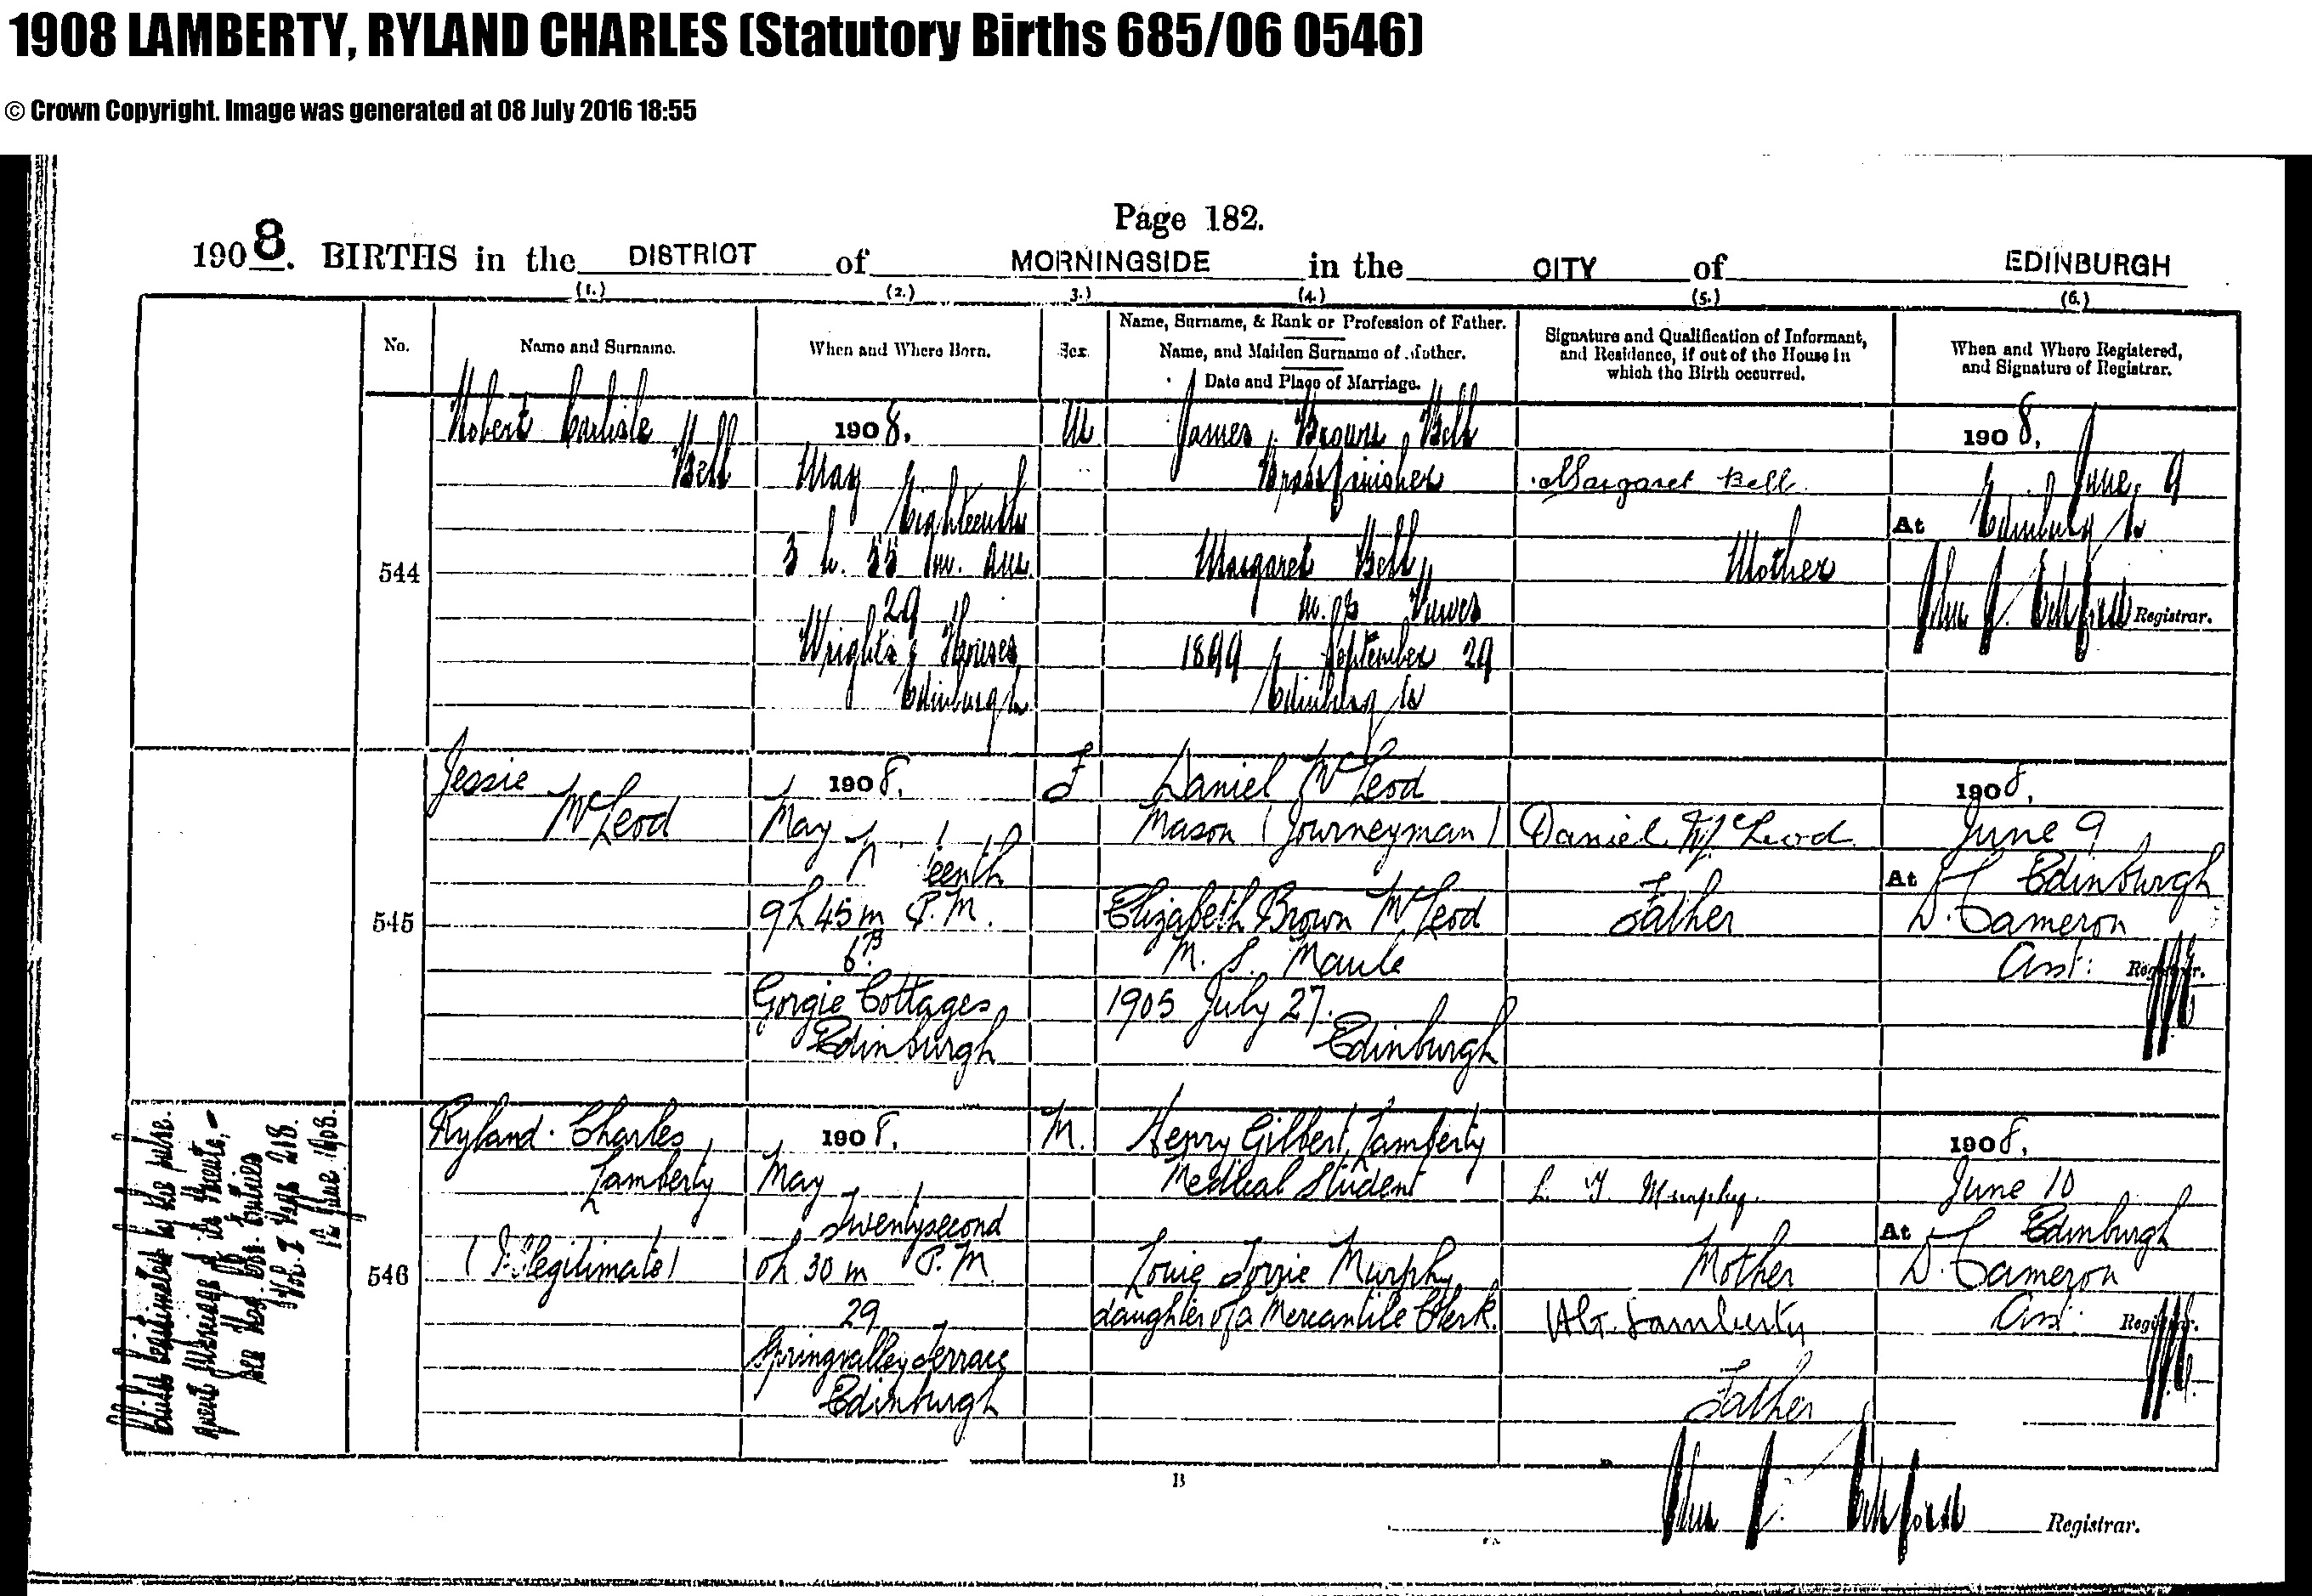 1908 LAMBERTY, RYLAND CHARLES (Statutory Births 685/06 0546)
© Crown Copyright. Image was generated at 08 July 2016 18:55
Page 182.
1908. BIRTHS in the DISTRICT of MORNINGSIDE in the CITY of EDINBURGH
(1.) (2.) 3.) (4.) (5.) (6.)
No.
Name and Surname.
When and Where Born.
Sex.
Name, Surname, & Rank or Profession of Father.
Name, and Maiden Surname of Mother.
Date and Place of Marriage.
Signature and Qualification of Informant,
and Residence, if out of the House in
which the Birth occurred.
When and Where Registered,
and Signature of Registrar.
544
Robert Carlisle
Bell
1908.
May
Eighteenth
3 h. 55 m. A.M.
29
Wrights Houses
Edinburgh
M
James Brown Bell
Brassfinisher
Margaret Bell
m.s.
1899 September 29
Edinburgh
Margaret Bell
Mother
1908,
June 9
At Edinburgh
Registrar.
545
Jessie
McLeod
1908.
May
teenth
9h 45m P.M.
6B
Gorgie Cottages
Edinburgh
F
Daniel McLeod
Mason (Journeyman)
Elizabeth Brown McLeod
M. S. Maule
1905 July 27.
Edinburgh
Daniel McLeod
Father
1908,
June 9
At Edinburgh
D. Cameron
Asst: Registrar.
546
Ryland Charles
Lamberty
(Illegitimate)
1908.
May
Twentysecond
0h 30m P.M
29
Springvalley Terrace
Edinburgh
M.
Henry Gilbert Lamberty
Medical Student
Louie Torrie Murphy
daughter of a Mercantile Clerk.
L. T. Murphy.
Mother
H.G. Lamberty
Father
1908,
June 10
At Edinburgh
D. Cameron
Asst: Registrar.
Child legitimated by the subse-
quent Marriage of its Parents.-
See Reg. of Cor. Entries
Vol. I Page 218.
12 June 1908.
B
Registrar.